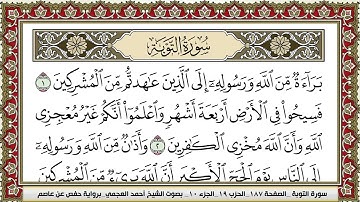 سُورَةُ التَّوْبَةِ
بَرَآءَةٌ مِّنَ ٱللَّهِ وَرَسُولِهِۦٓ إِلَى ٱلَّذِينَ عَٰهَدتُّم مِّنَ ٱلْمُشْرِكِينَ ١
فَسِيحُوا۟ فِى ٱلْأَرْضِ أَرْبَعَةَ أَشْهُرٍ وَٱعْلَمُوٓا۟ أَنَّكُمْ غَيْرُ مُعْجِزِى
ٱللَّهِ وَأَنَّ ٱللَّهَ مُخْزِى ٱلْكَٰفِرِينَ ٢ وَأَذَٰنٌ مِّنَ ٱللَّهِ وَرَسُولِهِۦٓ
إِلَى ٱلنَّاسِ يَوْمَ ٱلْحَجِّ ٱلْأَكْبَرِ أَنَّ ٱللَّهَ بَرِىٓءٌ مِّنَ ٱلْمُشْرِكِينَ
سورة التوبة_ الصفحة ١٨٧_ الحزب ١٩_ الجزء ١٠_ بصوت الشيخ أحمد العجمي_ برواية حفص عن عاصم